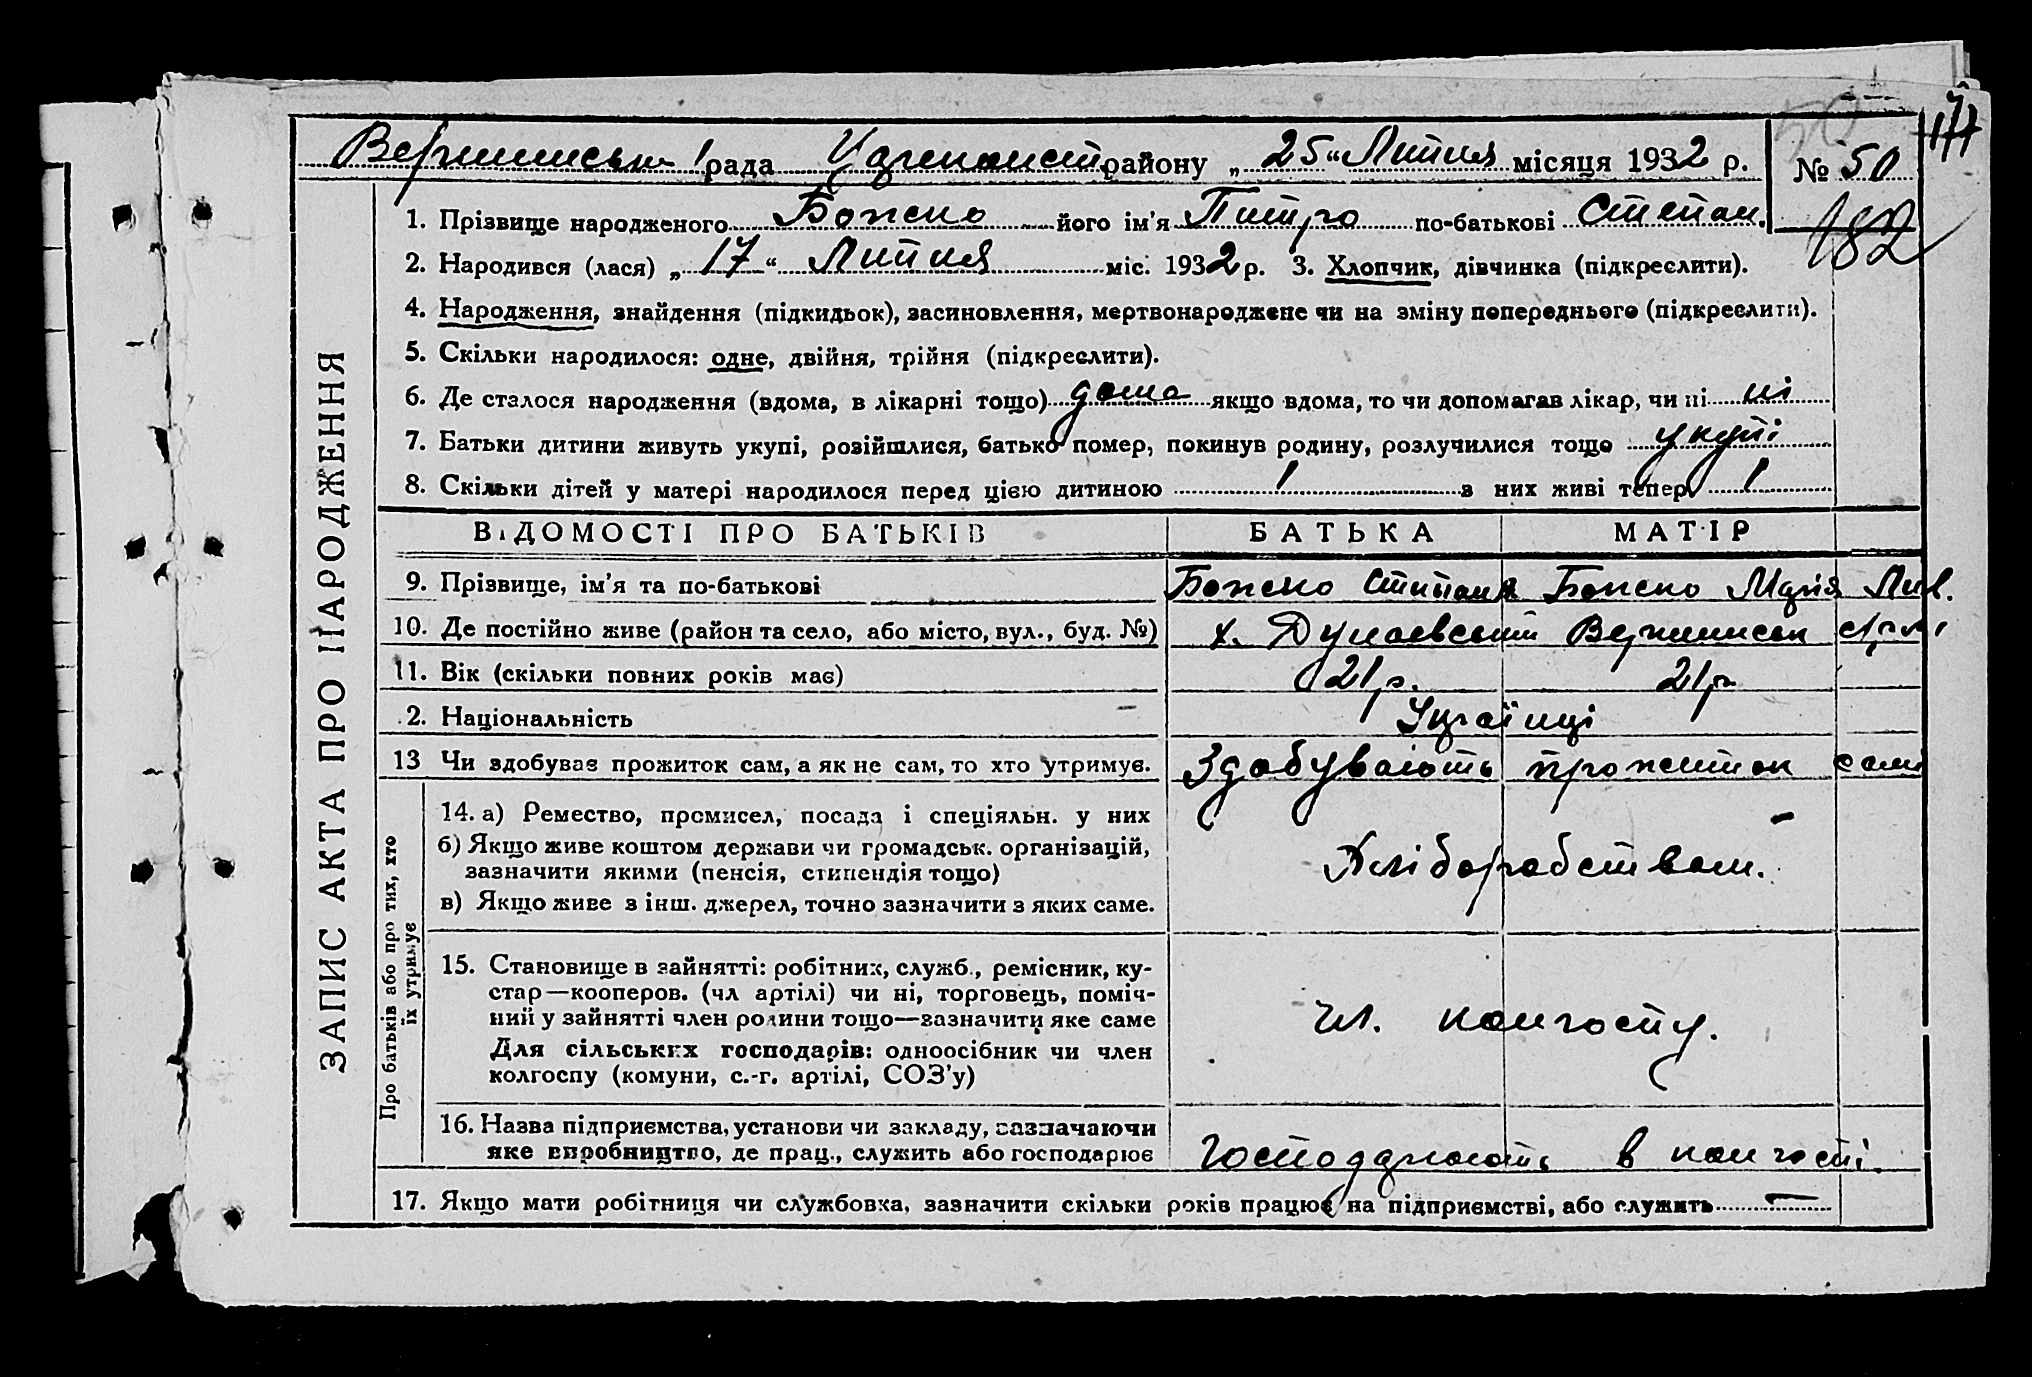 рада району „25“ Липня місяця 1932 р. № 50
182
1. Прізвище народженого Божко його ім'я Питро по-батькові Степан.
2. Народився (лася) „17“ Липня міс. 1932 р. 3. Хлопчик, дівчинка (підкреслити).
4. Народження, знайдення (підкидьок), засиновлення, мертвонароджене чи на зміну попереднього (підкреслити).
5. Скільки народилося: одне, двійня, трійня (підкреслити).
6. Де сталося народження (вдома, в лікарні тощо) дома якщо вдома, то чи допомагав лікар, чи ні ні
7. Батьки дитини живуть укупі, розійшлися, батько помер, покинув родину, розлучилися тощо укупі
8. Скільки дітей у матері народилося перед цією дитиною 1 з них живі тепер 1
ЗАПИС АКТА ПРО НАРОДЖЕННЯ
ВІДОМОСТІ ПРО БАТЬКІВ БАТЬКА МАТІР
9. Прізвище, ім'я та по-батькові Божко Божко Марія
10. Де постійно живе (район та село, або місто, вул., буд. №) х.
11. Вік (скільки повних років має) 21 р. 21 р.
12. Національність Українці
13 Чи здобуває прожиток сам, а як не сам, то хто утримує. Здобувають прожиток самі
Про батьків або про тих, хто їх утримує
14. а) Ремество, промисел, посада і спеціяльн. у них
б) Якщо живе коштом держави чи громадськ. організацій,
зазначити якими (пенсія, стипендія тощо) Хліборобством.
в) Якщо живе з інш. джерел, точно зазначити з яких саме.
15. Становище в зайнятті: робітник, служб., ремісник, ку-
стар—кооперов. (чл артілі) чи ні, торговець, поміч-
ний у зайнятті член родини тощо—зазначити яке саме чл. колгоспу.
Для сільських господарів: одноосібник чи член
колгоспу (комуни, с.-г. артілі, СОЗ'у)
16. Назва підприємства, установи чи закладу, зазначаючи
яке виробництво, де прац., служить або господарює Господарюють в колгоспі.
17. Якщо мати робітниця чи службовка, зазначити скільки років працює на підприємстві, або служить —